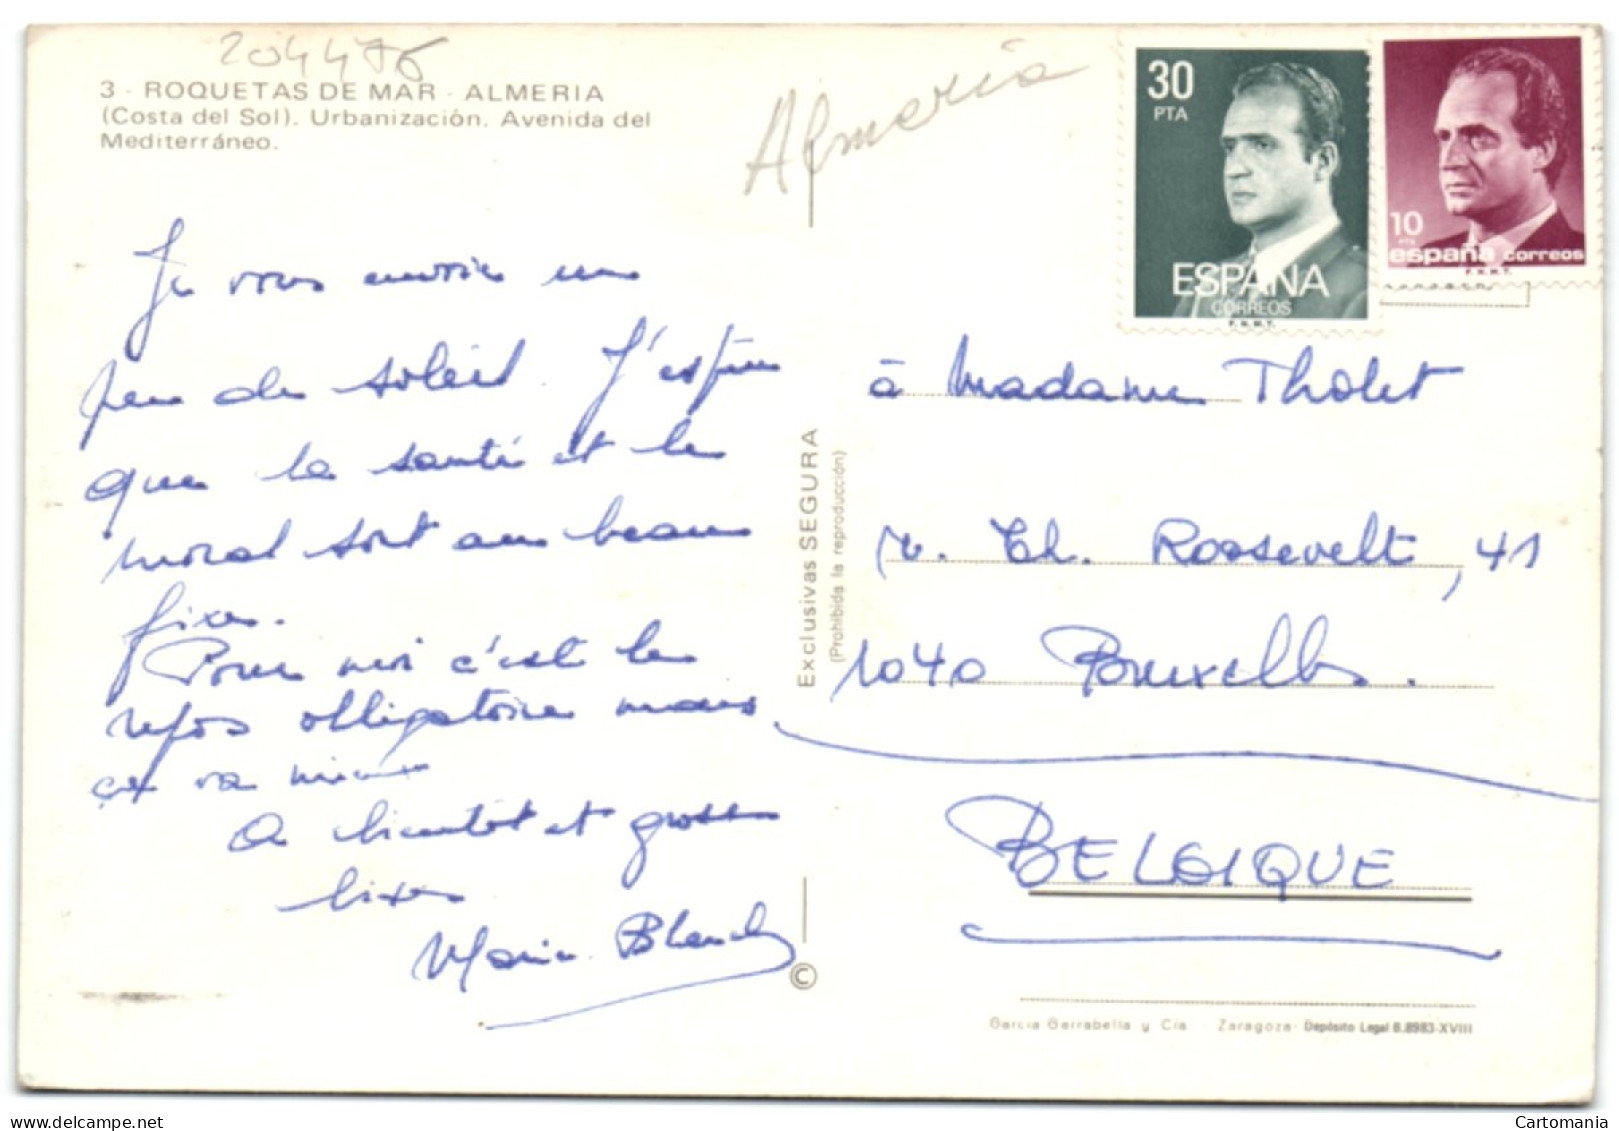 204476
3 - ROQUETAS DE MAR - ALMERIA
(Costa del Sol). Urbanización. Avenida del
Mediterráneo.
Almeria
30
PTA
ESPAÑA
CORREOS
F.N.M.T.
10
PTA
españa correos
F.N.M.T.
Je vous envoie un
peu de soleil. J'espère
que la santé et le
moral sont au beau
fixe.
Pour moi c'est le
repos obligatoire mais
ça va mieux
A bientôt et grosses
bises
Marie Blanche
Exclusivas SEGURA
(Prohibida la reproducción)
©
à Madame Tholet
r. Th. Roosevelt, 41
1040 Bruxelles.
BELGIQUE
García Garrabella y Cía. - Zaragoza - Depósito Legal B.8983-XVIII
Cartomania